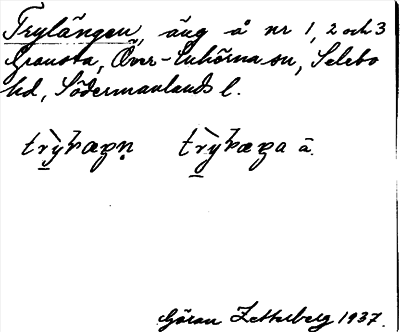 Trylängen, äng å nr 1, 2 och 3
Gransta, Över-Enhörna sn, Selebo
hd, Södermanlands l.
ä.
Göran Zetterberg 1937.